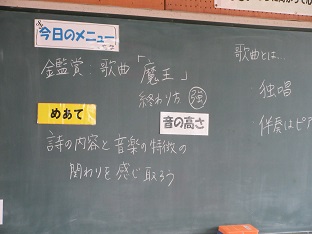 今日のメニュー
鑑賞 歌曲「魔王」
終わり方 強
めあて
音の高さ
詩の内容と音楽の特徴の
関わりを感じ取ろう
歌曲とは…
独唱
伴奏はピア